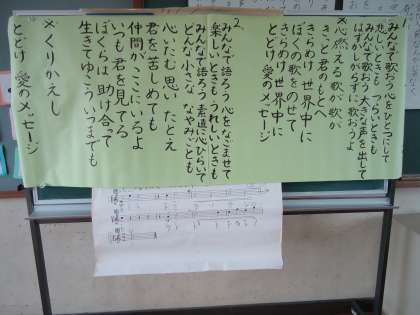 1.
みんなで歌おう 心をひとつにして
悲しいときも つらいときも
みんなで歌おう 大きな声を出して
はずかしがらずに 歌おうよ
※心燃える歌が 歌が
きっと 君のもとへ
きらめけ 世界中に
ぼくの歌をのせて
きらめけ 世界中に
とどけ 愛のメッセージ
2.
みんなで語ろう 心をなごませて
楽しいときも うれしいときも
みんなで語ろう 素直に心ひらいて
どんな小さな なやみごとも
心いたむ思い たとえ
君を苦しめても
仲間がここにいるよ
いつも 君を見てる
ぼくらは 助け合って
生きてゆこう いつまでも
※くりかえし
とどけ 愛のメッセージ